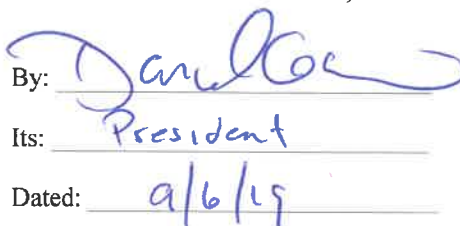 By:
Its: President
Dated: 9/6/19